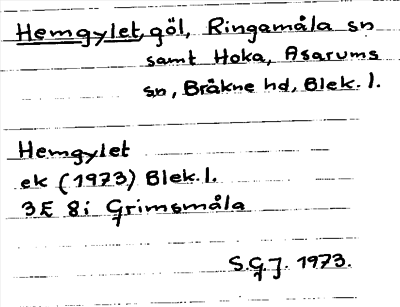 Hemgylet, göl, Ringamåla sn
samt Hoka, Asarums
sn, Bräkne hd, Blek. l.
Hemgylet
ek (1973) Blek. l.
3E 8i Grimsmåla
S.G.J. 1973.